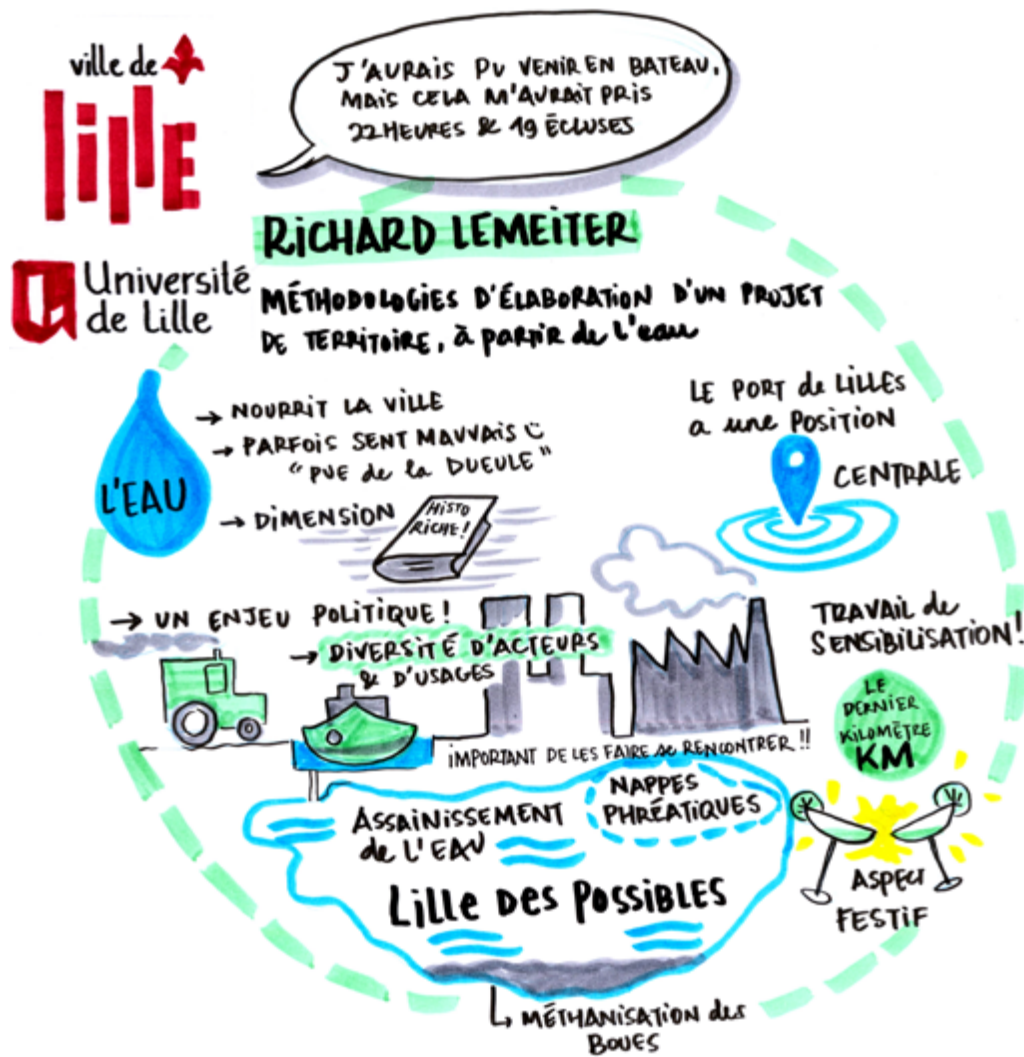 ville de
lille
Université
de Lille
J'AURAIS PU VENIR EN BATEAU,
MAIS CELA M'AURAIT PRIS
22 HEURES & 19 ÉCLUSES
RICHARD LEMEITER
MÉTHODOLOGIES D'ÉLABORATION D'UN PROJET
DE TERRITOIRE, à partir de l'eau
L'EAU
→ NOURRIT LA VILLE
→ PARFOIS SENT MAUVAIS
"PUE de la DUEULE"
→ DIMENSION
HISTO
RICHE!
LE PORT de LILLES
a une POSITION
CENTRALE
→ UN ENJEU POLITIQUE!
→ DIVERSITÉ D'ACTEURS
& D'USAGES
IMPORTANT DE LES FAIRE se RENCONTRER !!
TRAVAIL de
SENSIBILISATION!
LE
DERNIER
KILOMÈTRE
KM
ASPECT
FESTIF
ASSAINISSEMENT
de L'EAU
NAPPES
PHRÉATIQUES
LILLE DES POSSIBLES
↳ MÉTHANISATION des
BOUES